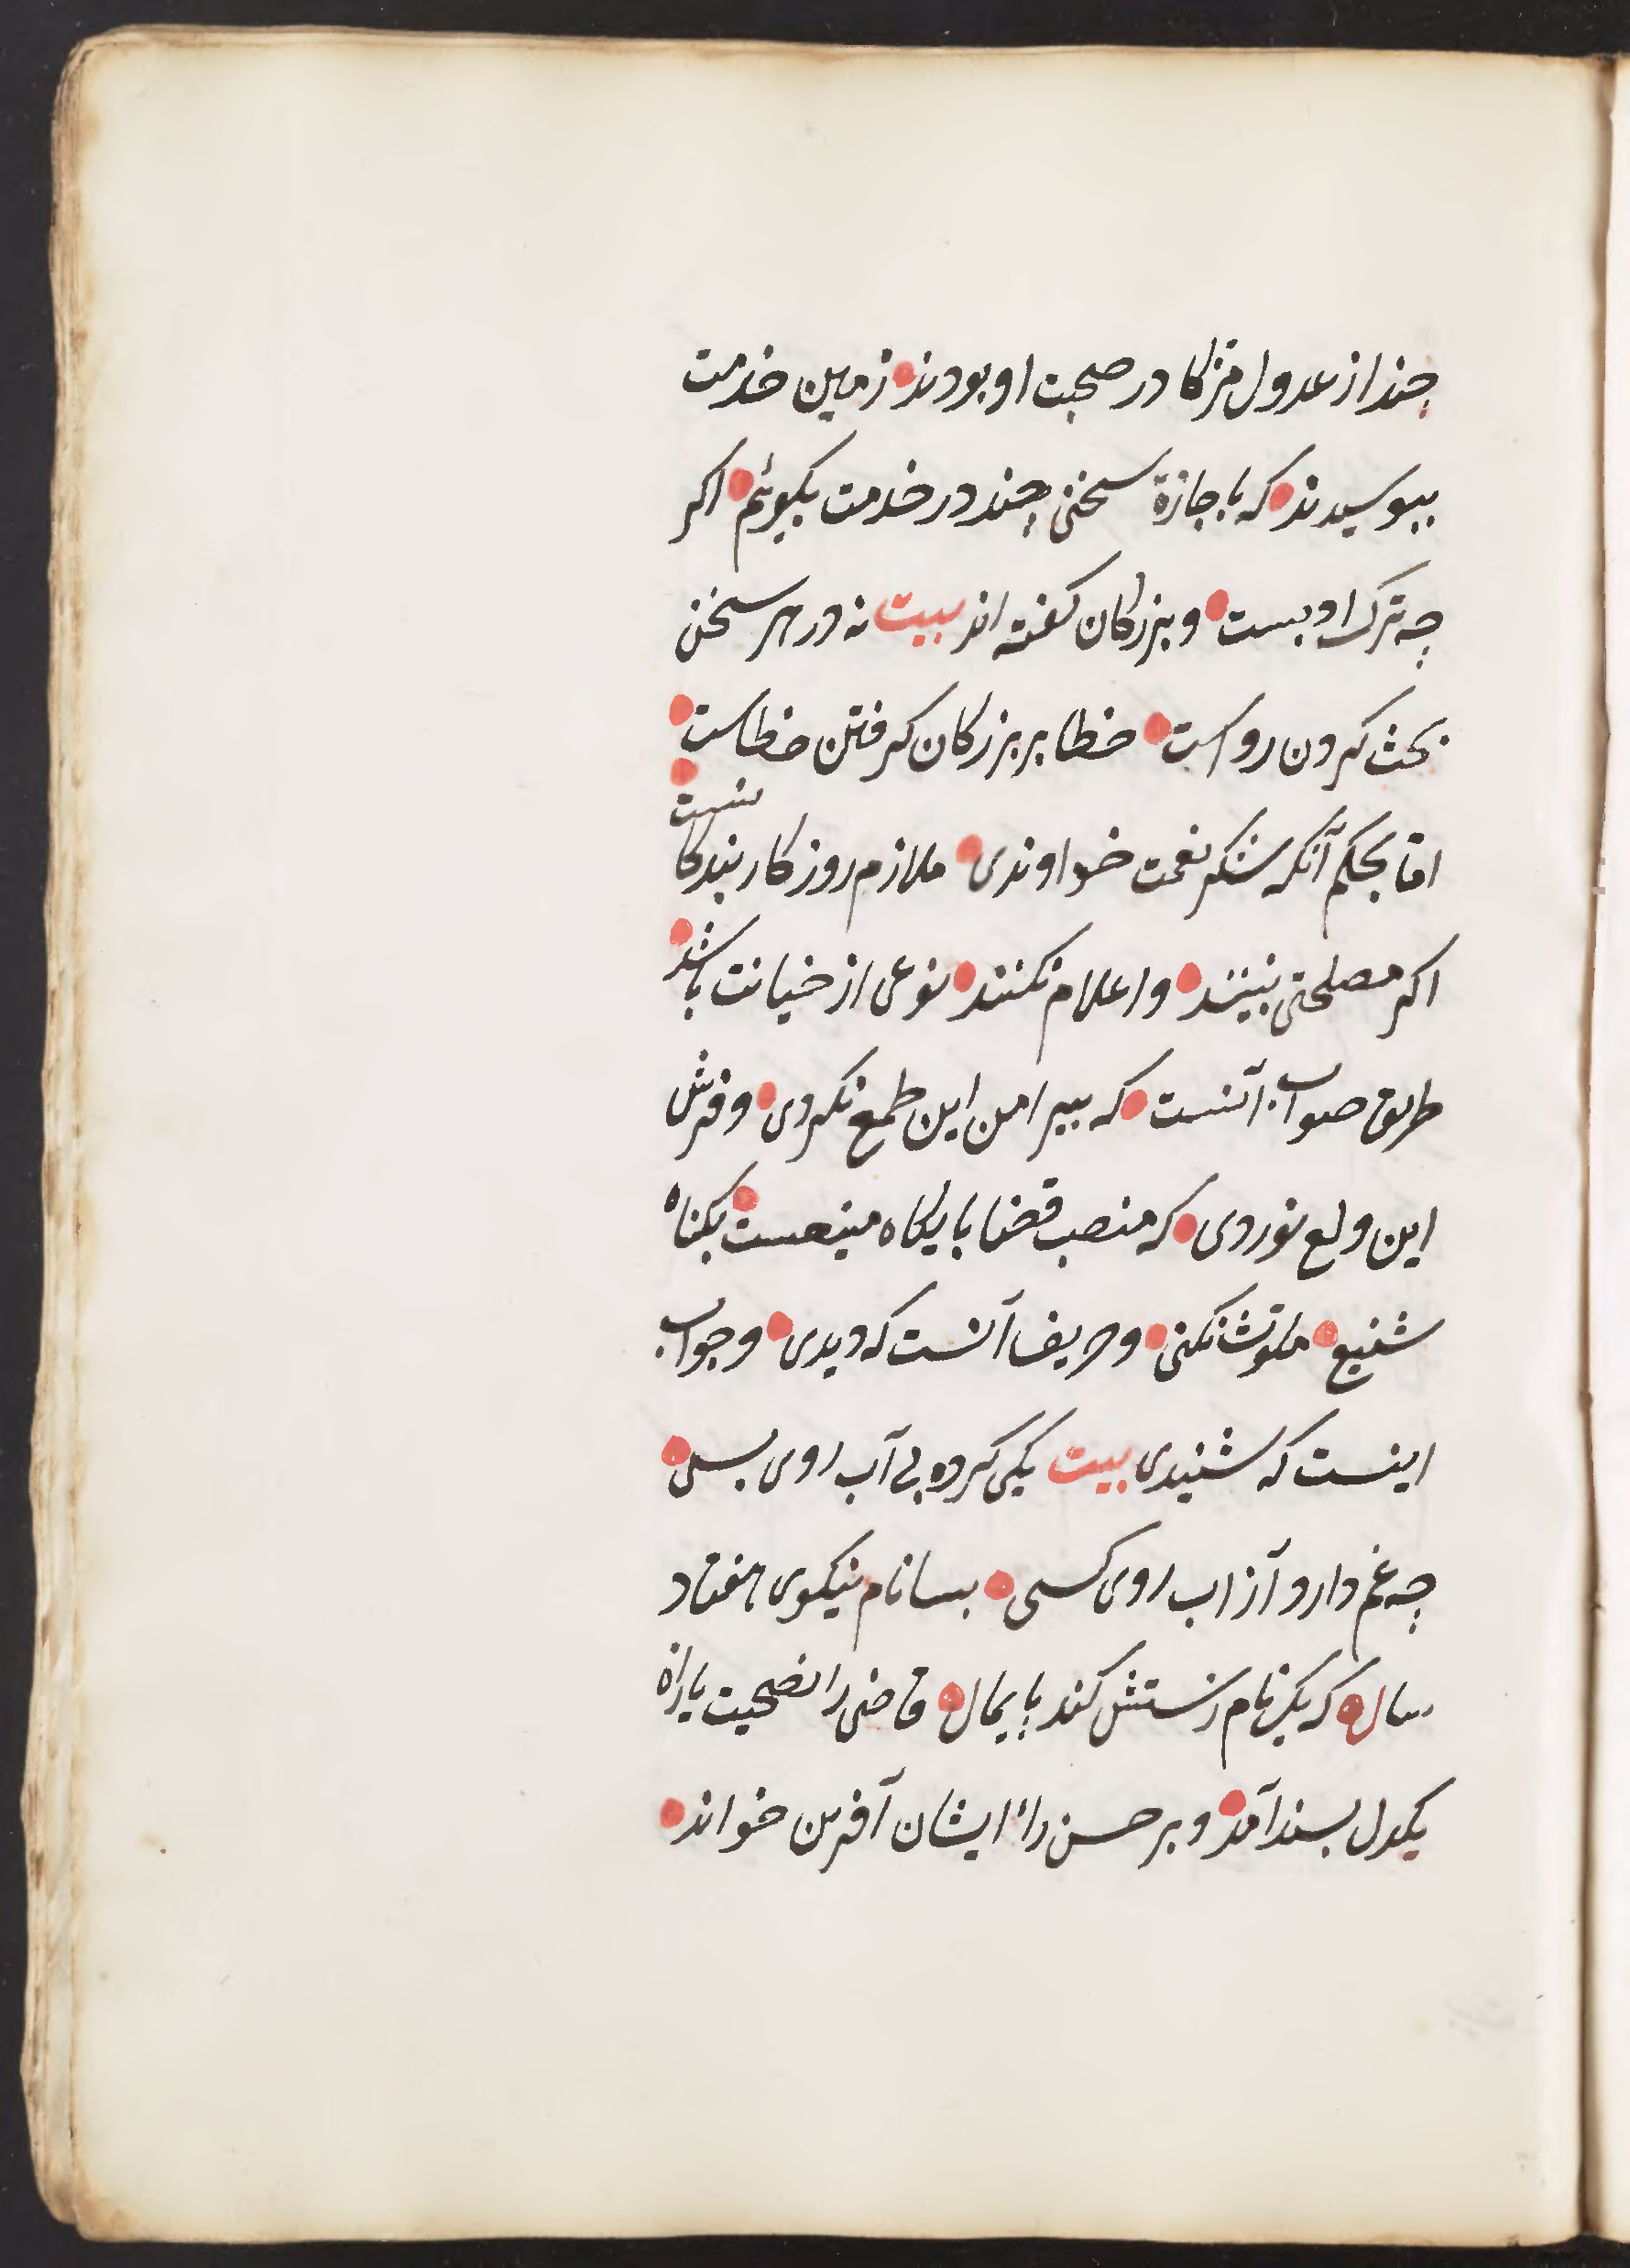 چند از عدول مزکا در صحبت او بودند زمین خدمت
ببوسیدند که باجازة سخنی چند در خدمت بکوئیم اکر
چه ترک ادبست و بزرکان کفته اند بیت نه در هر سخن
بحث کردن رواست خطا بر بزرکان کرفتن خطاست
اما بحکم آنکه شکر نعمت خداوندی ملازم روزکار بندکانست
اکر مصلحتی بینند و اعلام نکنند نوعی از خیانت باشد
طریق صواب آنست که بپیرامن این طمع نکردی و فرش
این ولع نوردی که منصب قضا بایکاه منیعست بکناه
شنیع ملوّث نکنی و حریف آنست که دیدی و جواب
اینست که شنیدی بیت یکی کرده بی آب روی بسی
چه غم دارد آز اب روی کسی بسا نام نیکوی هفتاد
سال که یک نام زشتش کند پایمال قاضی را نصحیت یاران
یکدل پسند آمد و بر حسن راء ایشان آفرین خواند